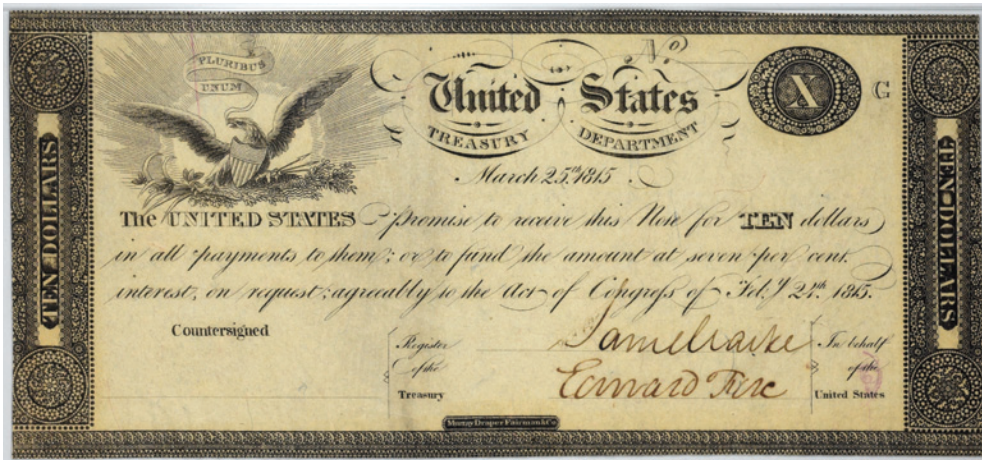 PLURIBUS
UNUM
No
United States
TREASURY DEPARTMENT
X
G
March 25th. 1815.
TEN DOLLARS
TEN DOLLARS
The UNITED STATES promise to receive this Note for TEN dollars
in all payments to them; or to fund the amount at seven per cent.
interest, on request; agreeably to the Act of Congress of Feb.y 24th. 1815.
Countersigned
Register
of the
Treasury
In behalf
of the
United States
Murray Draper Fairman & Co